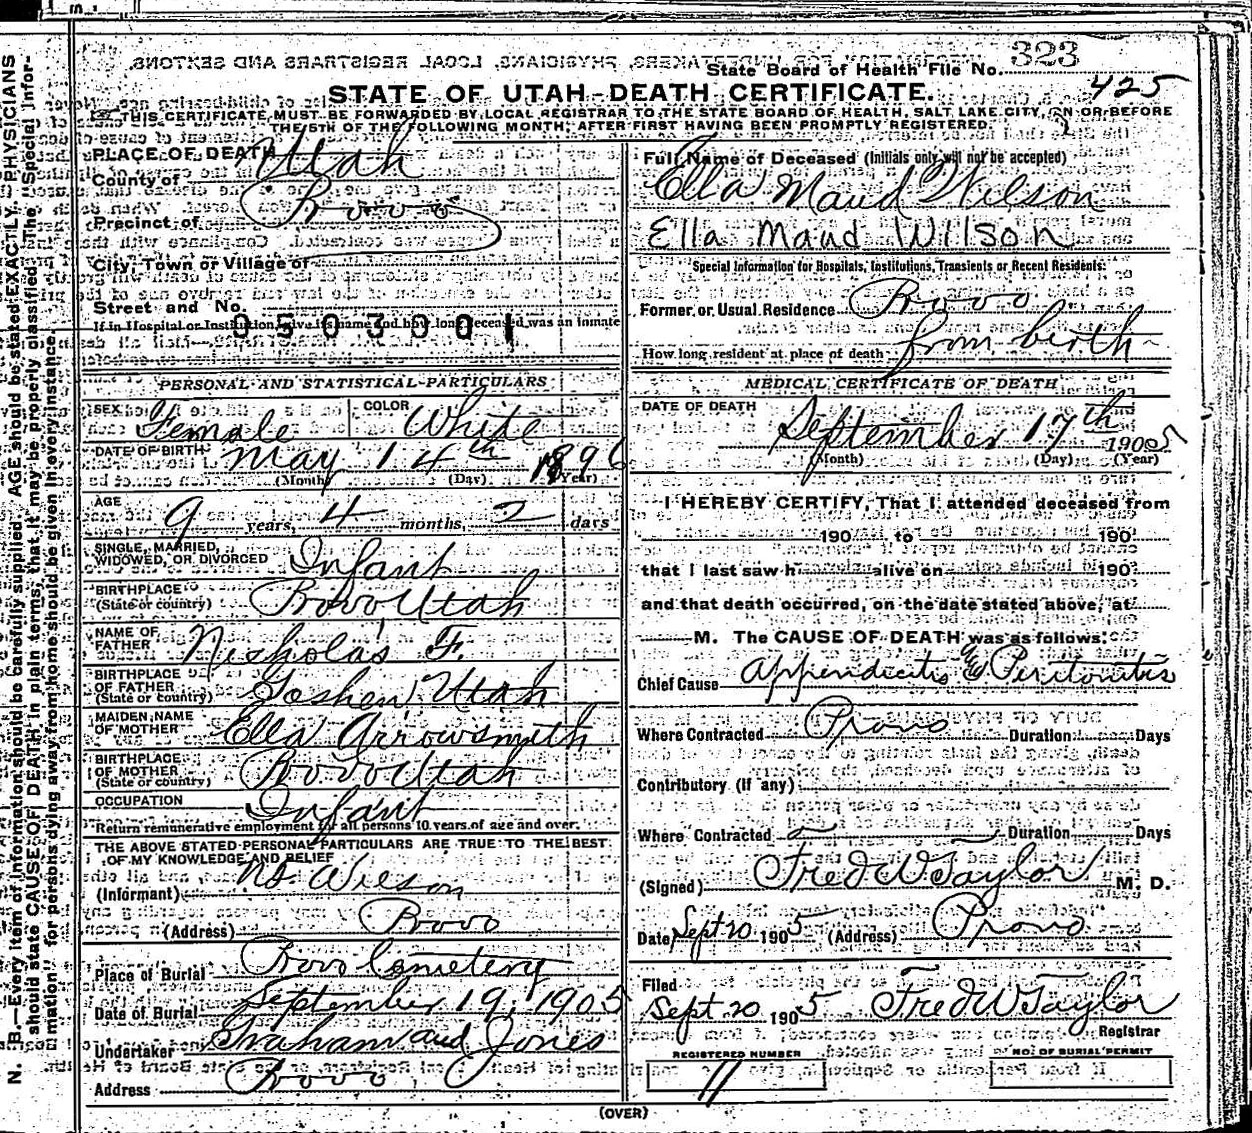 State Board of Health File No. 323
425
STATE OF UTAH-DEATH CERTIFICATE.
THIS CERTIFICATE MUST BE FORWARDED BY LOCAL REGISTRAR TO THE STATE BOARD OF HEALTH, SALT LAKE CITY, ON OR BEFORE
THE 5TH OF THE FOLLOWING MONTH, AFTER FIRST HAVING BEEN PROMPTLY REGISTERED.
PLACE OF DEATH
County of Utah
Precinct of Provo
City, Town or Village of
Street and No.
If in Hospital or Institution, give its name and how long deceased was an inmate
0503001
PERSONAL AND STATISTICAL PARTICULARS
SEX Female COLOR White
DATE OF BIRTH May 14th 1896
(Month) (Day) (Year)
AGE 9 years, 4 months, 2 days
SINGLE, MARRIED,
WIDOWED, OR DIVORCED Infant
BIRTHPLACE
(State or country) Provo Utah
NAME OF
FATHER Nicholas F.
BIRTHPLACE
OF FATHER
(State or country) Goshen Utah
MAIDEN NAME
OF MOTHER Ella Arrowsmith
BIRTHPLACE
OF MOTHER
(State or country) Provo Utah
OCCUPATION Infant
Return remunerative employment for all persons 10 years of age and over.
THE ABOVE STATED PERSONAL PARTICULARS ARE TRUE TO THE BEST
OF MY KNOWLEDGE AND BELIEF
(Informant) Wilson
(Address) Provo
Place of Burial Provo Cemetery
Date of Burial September 19, 1905
Undertaker Graham and Jones
Address Provo
Full Name of Deceased (Initials only will not be accepted)
Ella Maud Wilson
Ella Maud Wilson
Special Information for Hospitals, Institutions, Transients or Recent Residents:
Former or Usual Residence Provo
How long resident at place of death from birth
MEDICAL CERTIFICATE OF DEATH
DATE OF DEATH
September 17th 1905
(Month) (Day) (Year)
I HEREBY CERTIFY, That I attended deceased from
190 to 190
that I last saw h alive on 190
and that death occurred, on the date stated above, at
M. The CAUSE OF DEATH was as follows:
Chief Cause Appendicitis & Peritonitis
Where Contracted Provo Duration Days
Contributory (if any)
Where Contracted Duration Days
(Signed) Fred W Taylor M. D.
Date Sept 20 1905 (Address) Provo
Filed
Sept 20 1905 Fred W Taylor
Registrar
REGISTERED NUMBER NO. OF BURIAL PERMIT
11
(OVER)
N. B.—Every item of information should be carefully supplied. AGE should be stated EXACTLY. PHYSICIANS
should state CAUSE OF DEATH in plain terms, that it may be properly classified. The "Special Infor-
mation" for persons dying away from home should be given in every instance.